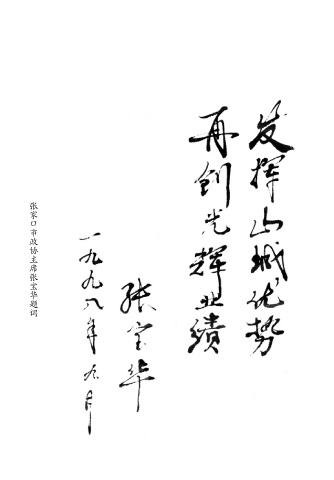 发挥山城优势
再创光辉业绩
张宝华
一九九八年九月
张家口市政协主席张宝华题词